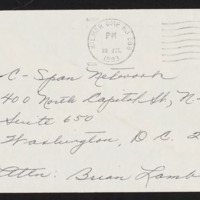 PM
1991
C-Span Network
400 North Capitol St, N-
Suite 650
Washington, D.C. 2
Attn: Brian Lamb